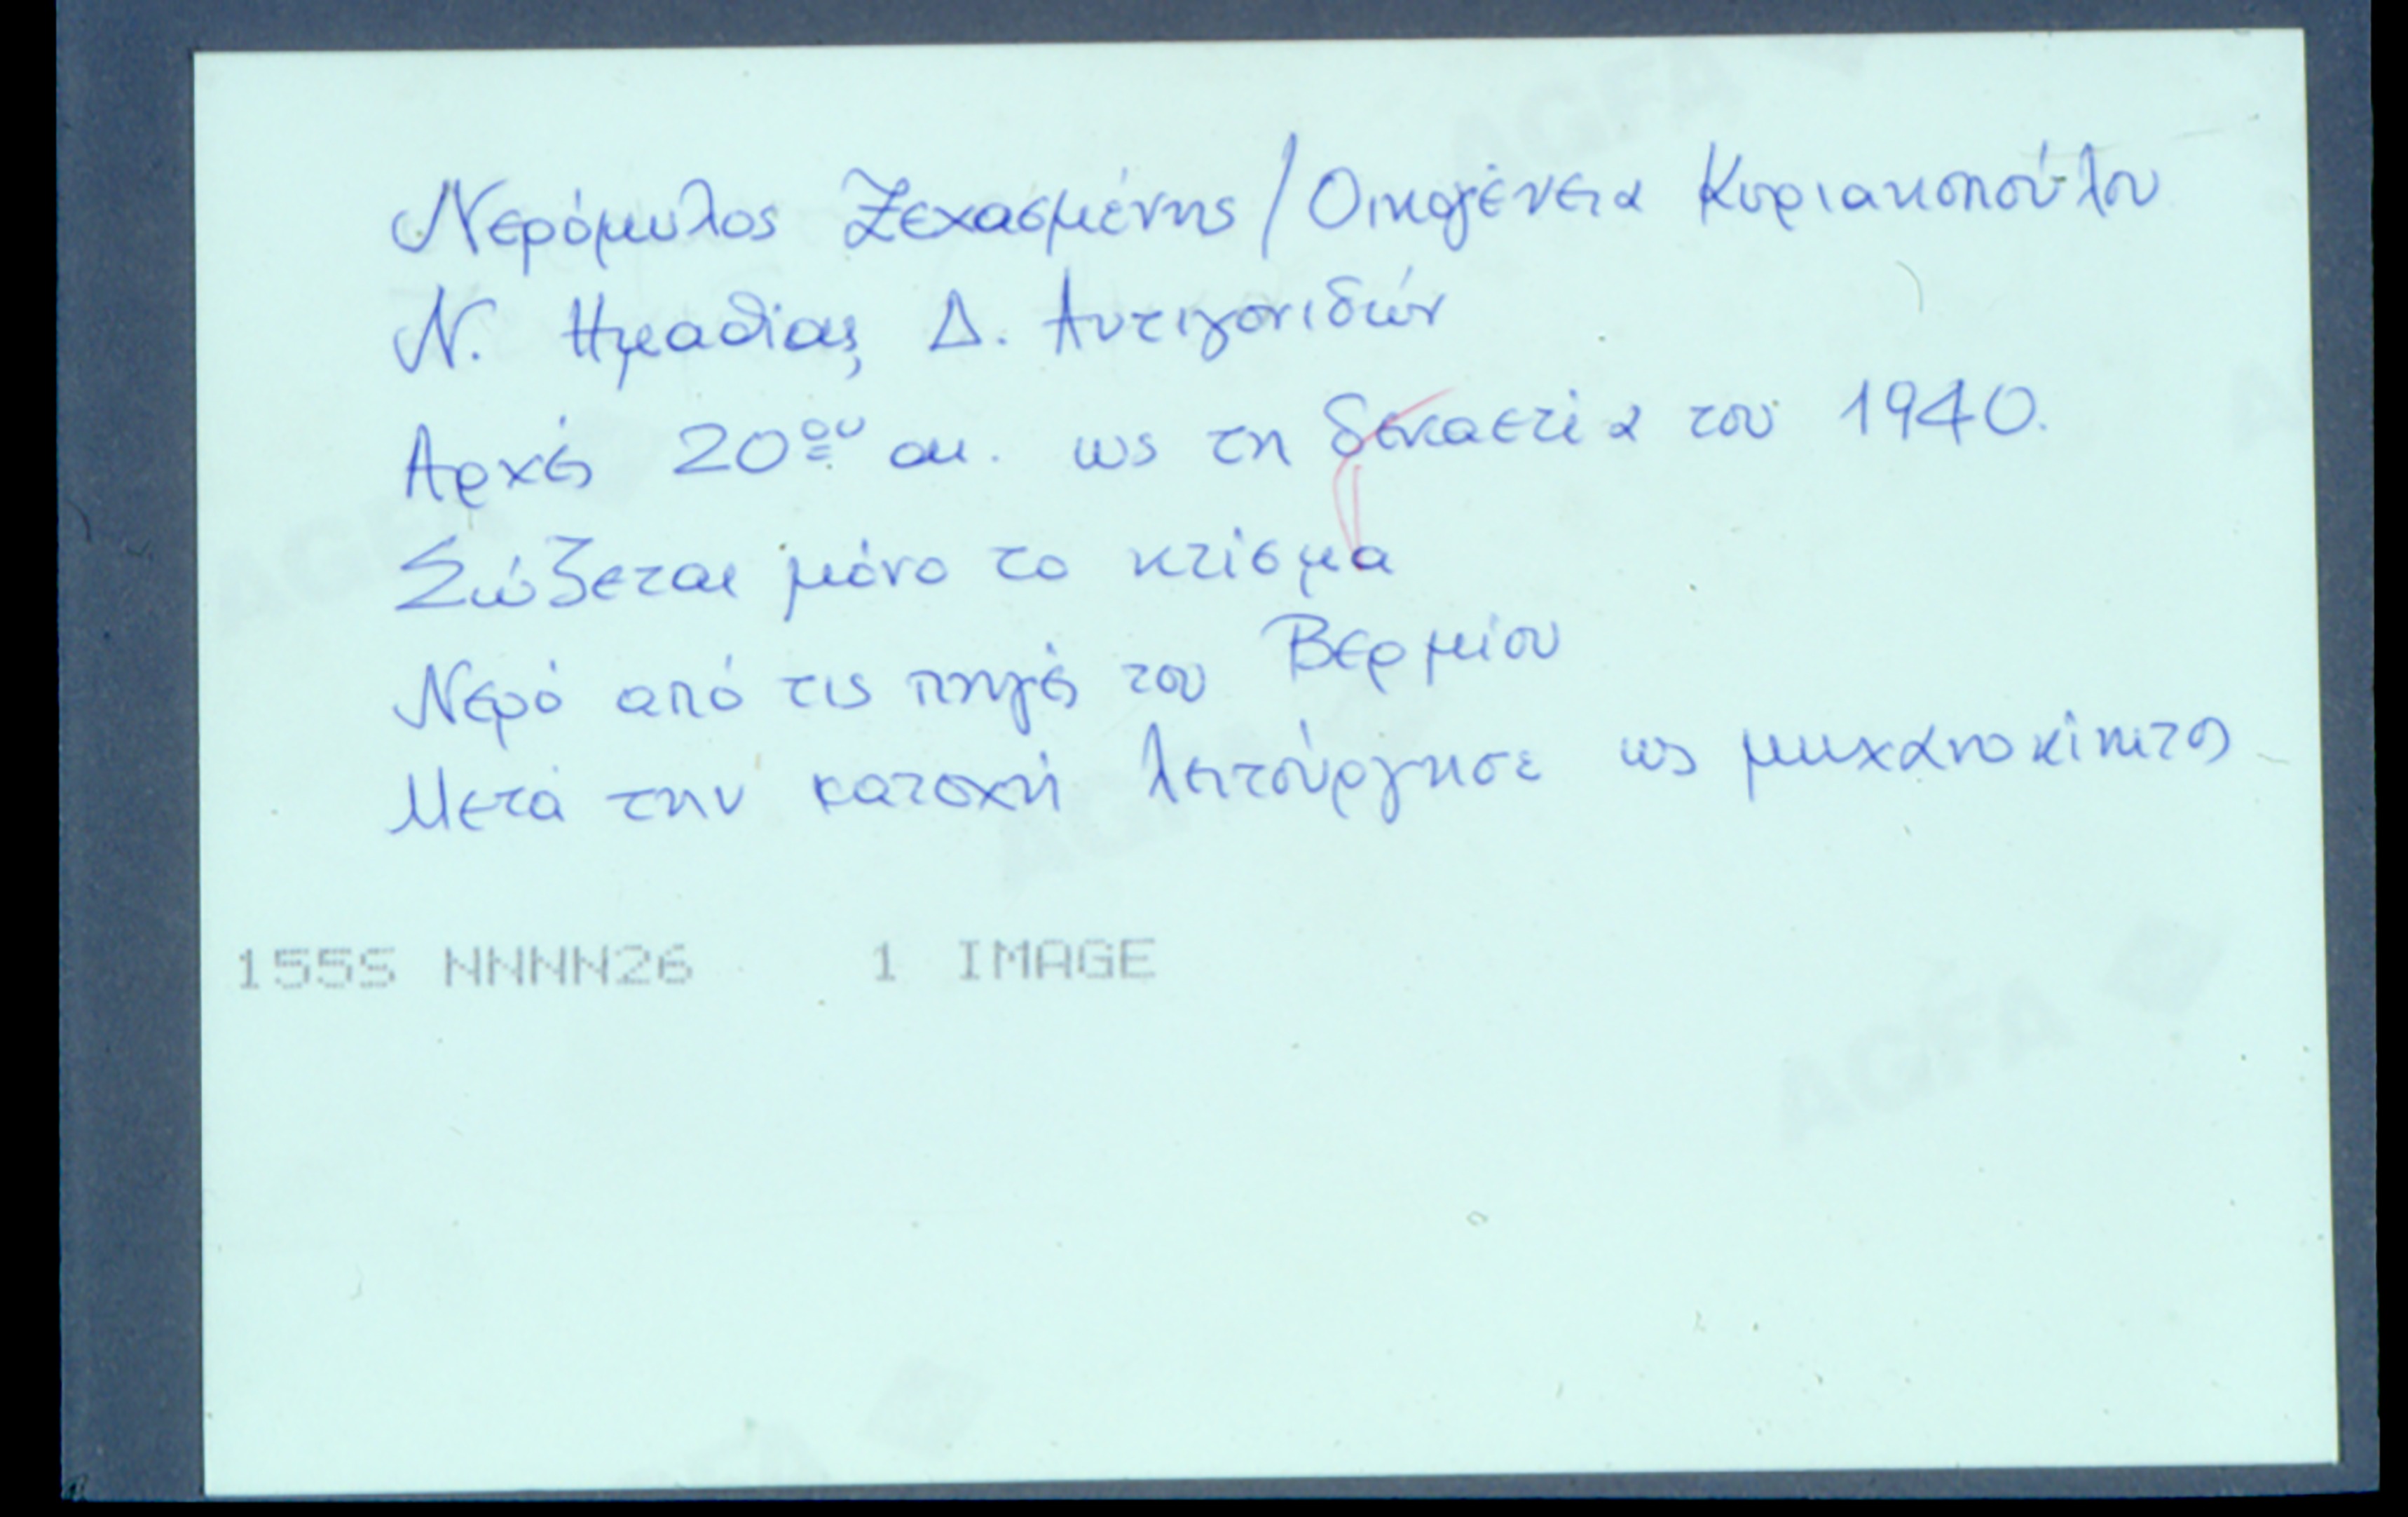 Νερόμυλος Ξεχασμένης / Οικογένεια Κυριακοπούλου
Ν. Ημαθίας, Δ. Αντιγονιδών
Αρχές 20ου αι. ως τη δεκαετία του 1940.
Σώζεται μόνο το κτίσμα
Νερό από τις πηγές του Βερμίου
Μετά την κατοχή λειτούργησε ως μηχανοκίνητος
155S NNNN26 1 IMAGE
AGFA
AGFA
AGFA
AGFA